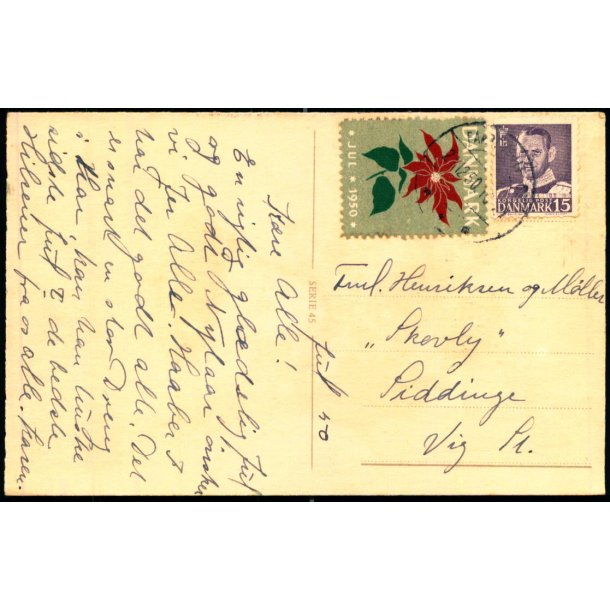 JUL * 1950 *
DANMARK
KONGELIG POST
DANMARK 15
Fml. Henriksen og Møller
"Skovly"
Siddinge
Vig St.
SERIE 45
Jul 50
Kære Alle!
En rigtig glædelig Jul
og godt Nytaar ønsker
vi Jer Alle. Haaber I
har det godt alle. Del
er snart en stor Dreng
i Har, kan han huske
sidste Jul? de bedste
Hilsener fra os alle. Karen.